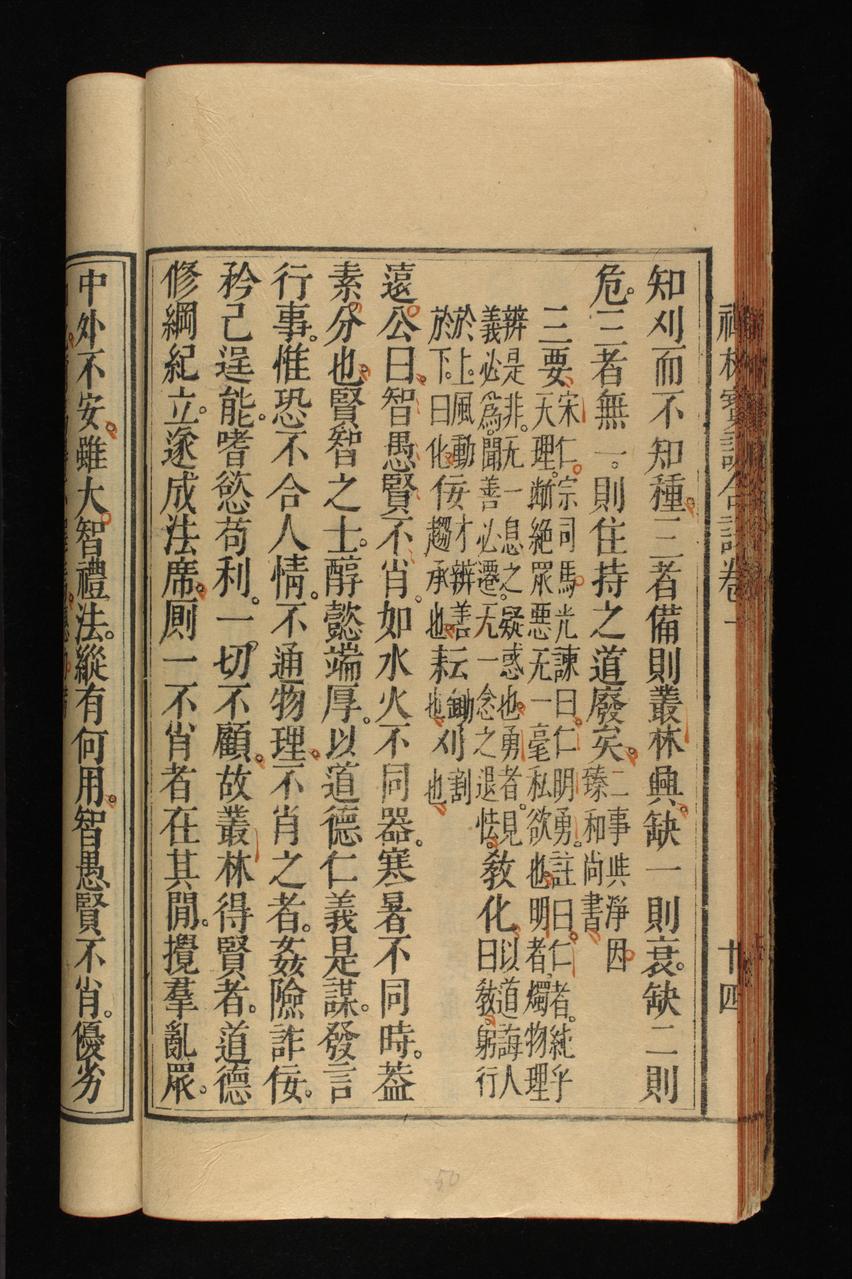 知刈而不知種三者備則叢林興缺一則衰缺二則
危三者無一則住持之道廢矣二事與淨因
臻和尚書
三要宋仁宗司馬光諫曰仁明勇註曰仁者純乎
天理斷絕眾惡无一毫私欲也明者燭物理
辨是非无一息之疑惑也勇者見
義必為聞善必遷无一念之退怯教化以道誨人
曰教躬行
於上風動
於下曰化佞才辨善
趨承也耘鋤
耒也刈割
也
遠公曰智愚賢不肖如水火不同器寒暑不同時蓋
素分也賢智之士醇懿端厚以道德仁義是謀發言
行事惟恐不合人情不通物理不肖之者姦險詐佞
矜己逞能嗜慾苟利一切不顧故叢林得賢者道德
修綱紀立遂成法席厠一不肖者在其閒攪羣亂眾
中外不安雖大智禮法縱有何用智愚賢不肖優劣
卷一
十四
50